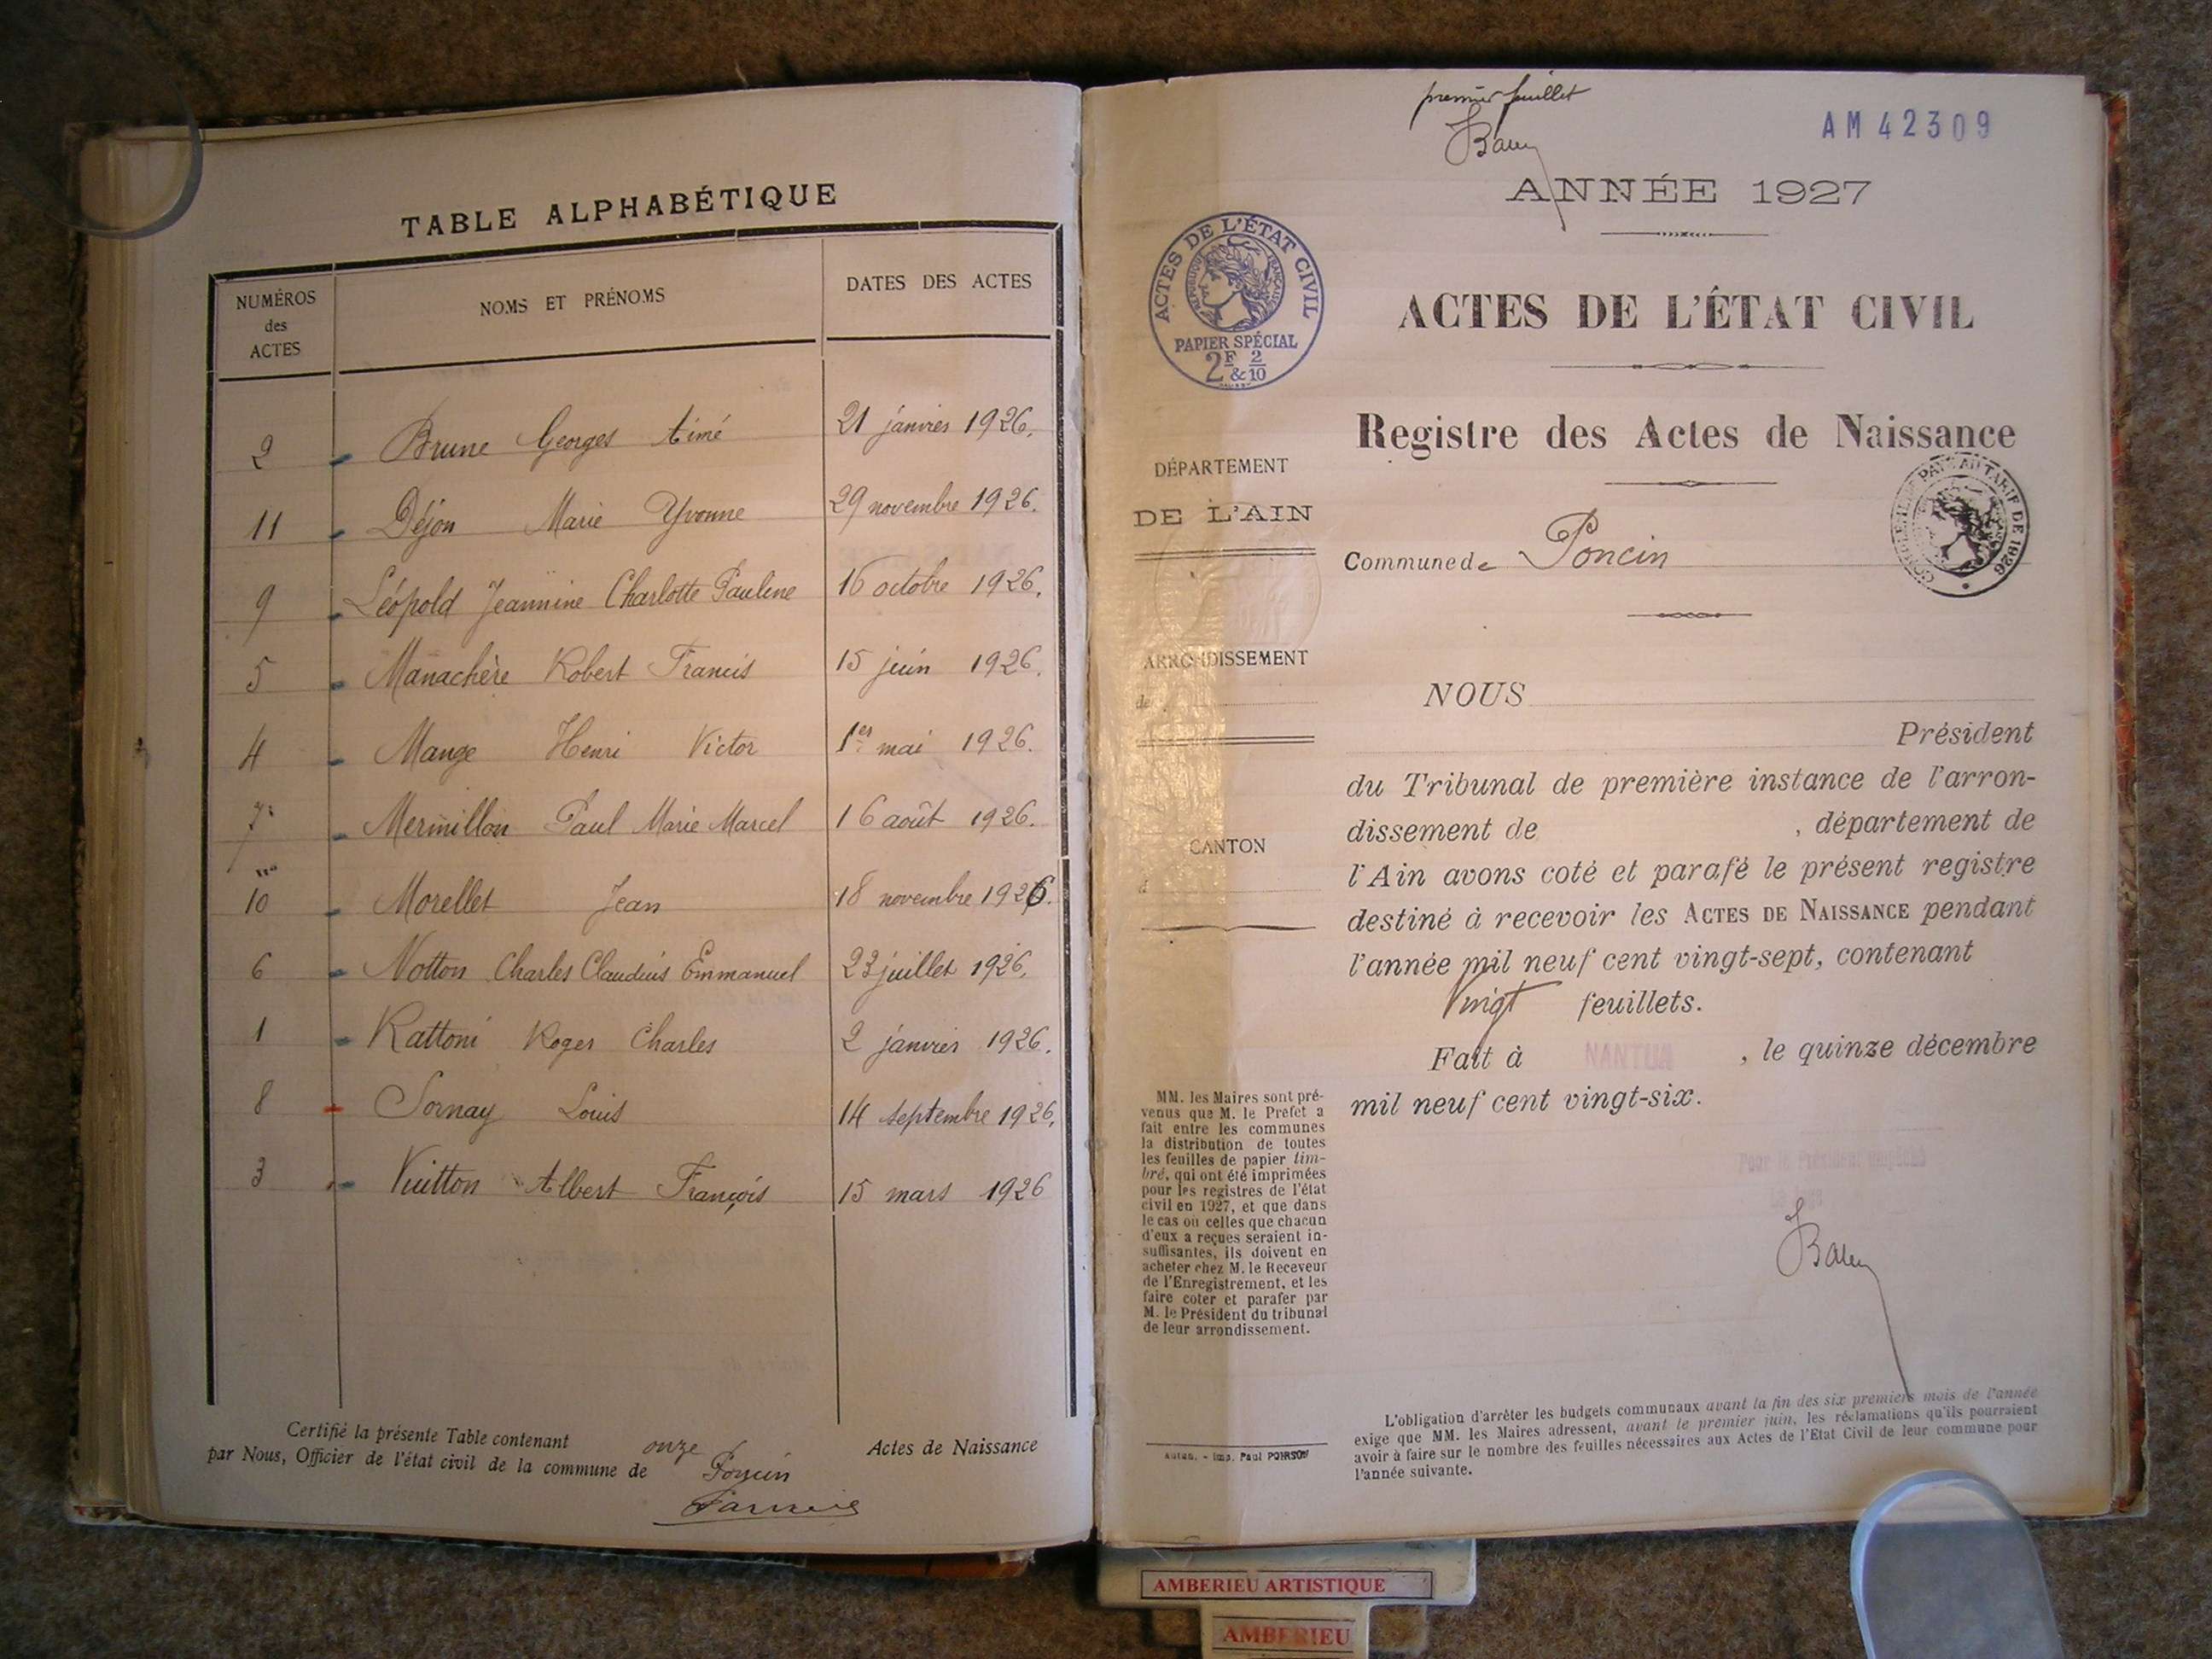 TABLE ALPHABÉTIQUE
NUMÉROS
des
ACTES
NOMS ET PRÉNOMS
DATES DES ACTES
2 Brune Georges Aimé 21 janvier 1926.
11 Déjon Marie Yvonne 29 novembre 1926.
9 Léopold Jeannine Charlotte Pauline 16 octobre 1926.
5 Manachère Robert Francis 15 juin 1926.
4 Mange Henri Victor 1er mai 1926.
7 Mermillon Paul Marie Marcel 16 août 1926.
10 Morellet Jean 18 novembre 1926.
6 Notton Charles Claudius Emmanuel 23 juillet 1926.
1 Rattoni Roger Charles 2 janvier 1926.
8 Sornay Louis 14 septembre 1926.
3 Vuitton Albert François 15 mars 1926
Certifié la présente Table contenant onze Actes de Naissance
par Nous, Officier de l'état civil de la commune de Poncin
premier feuillet
AM 42309
ANNÉE 1927
ACTES DE L'ÉTAT CIVIL
RÉPUBLIQUE FRANÇAISE
PAPIER SPÉCIAL
2F & 2/10
ACTES DE L'ÉTAT CIVIL
Registre des Actes de Naissance
DÉPARTEMENT
DE L'AIN
Commune de Poncin
ARRONDISSEMENT
de
CANTON
NOUS
Président
du Tribunal de première instance de l'arron-
dissement de , département de
l'Ain avons coté et parafé le présent registre
destiné à recevoir les ACTES DE NAISSANCE pendant
l'année mil neuf cent vingt-sept, contenant
Vingt feuillets.
Fait à NANTUA , le quinze décembre
mil neuf cent vingt-six.
Pour le Président empêché
MM. les Maires sont pré-
venus que M. le Préfet a
fait entre les communes
la distribution de toutes
les feuilles de papier tim-
bré, qui ont été imprimées
pour les registres de l'état
civil en 1927, et que dans
le cas où celles que chacun
d'eux a reçues seraient in-
suffisantes, ils doivent en
acheter chez M. le Receveur
de l'Enregistrement, et les
faire coter et parafer par
M. le Président du tribunal
de leur arrondissement.
Autun. - Imp. Paul POIRSON
L'obligation d'arrêter les budgets communaux avant la fin des six premiers mois de l'année
exige que MM. les Maires adressent, avant le premier juin, les réclamations qu'ils pourraient
avoir à faire sur le nombre des feuilles nécessaires aux Actes de l'Etat Civil de leur commune pour
l'année suivante.
AMBERIEU ARTISTIQUE
AMBERIEU